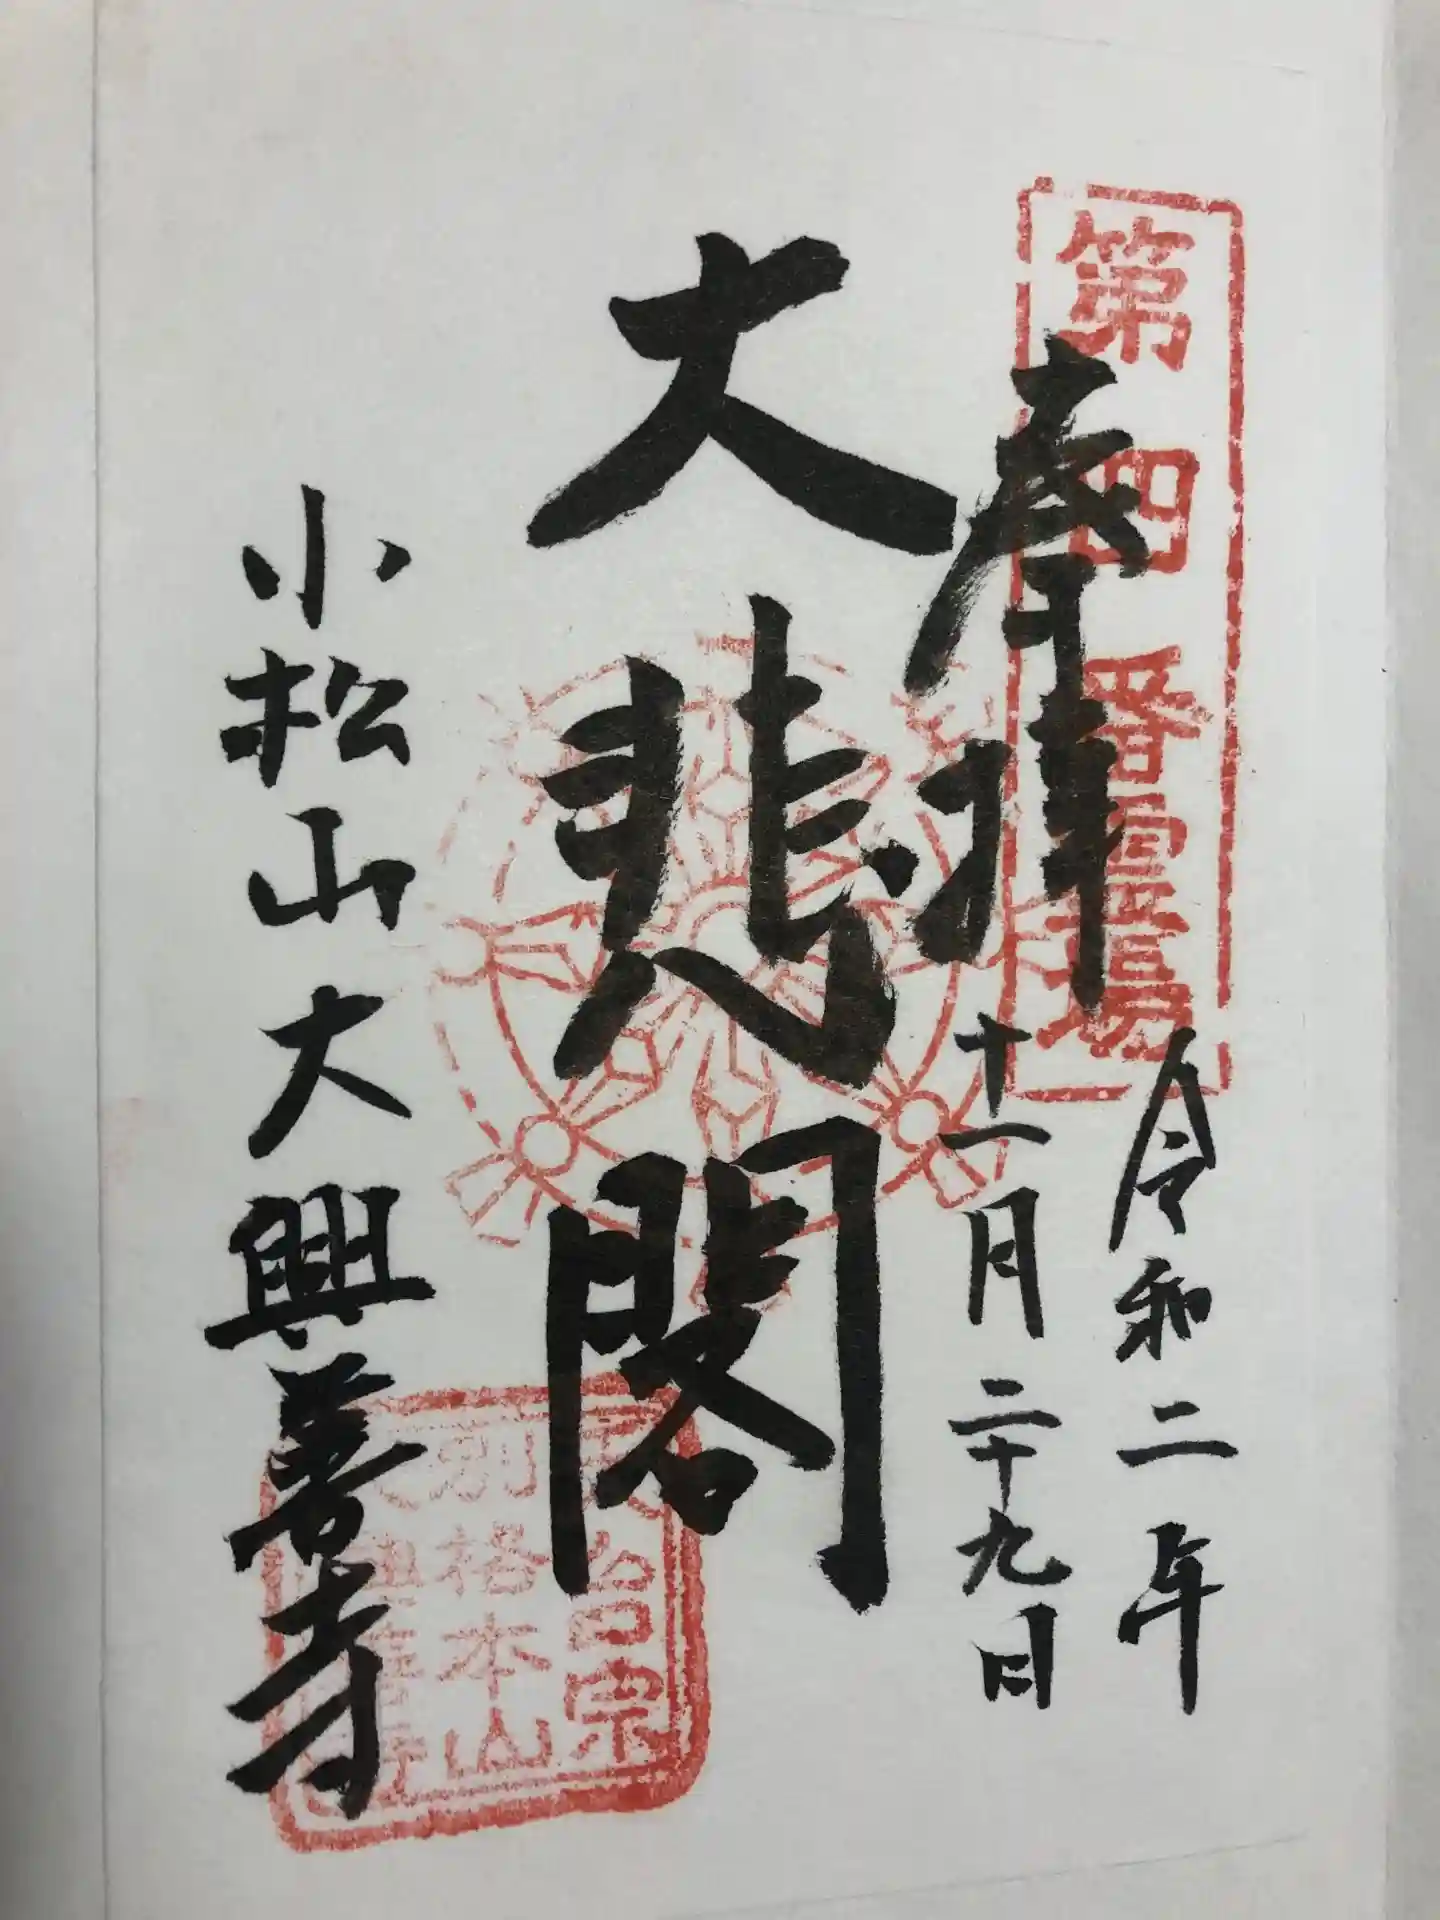 第四番霊場
奉拝
令和二年
十一月二十九日
大悲閣
小松山大興善寺
台宗
別格本山